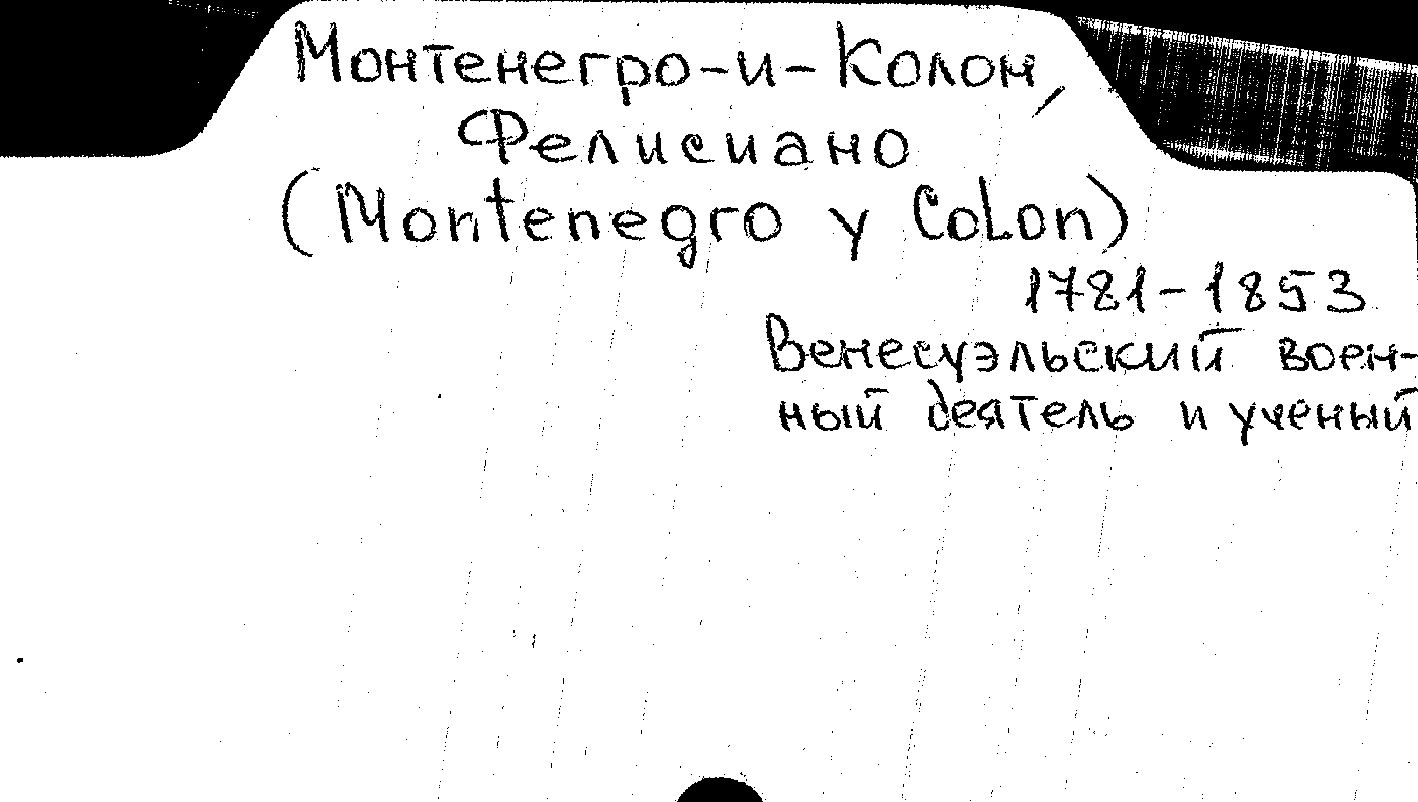 Монтенегро-и-Колон,
Фелисиано
(Montenegro y Colon)
1781-1853
Венесуэльский воен-
ный деятель и ученый